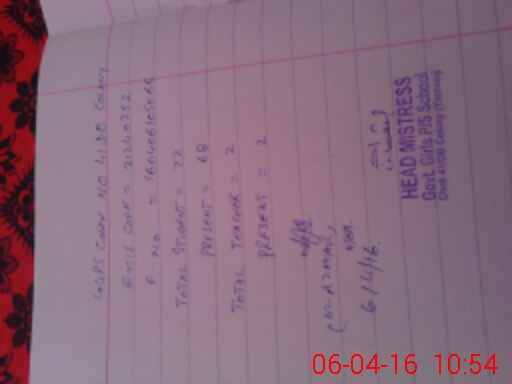 GGPS CHAK NO 41 DB COLONY
EMIS CODE = 31240352
TOTAL STUDENT = 72
PRESENT = 68
TOTAL TEACHER = 2
PRESENT = 2
(M. AZMAL)
6/4/16.
HEAD MISTRESS
Govt. Girls P/S School
Chak 41/DB Colony (Yazman)
06-04-16 10:54